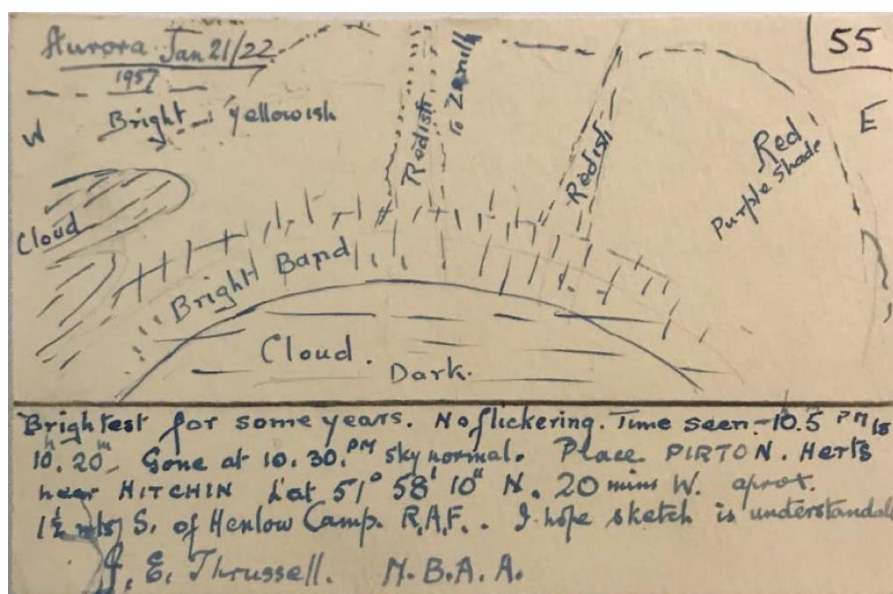 Aurora Jan 21/22
1957
55
W
Bright - Yellowish
Redish
To Zenith
Redish
Red
Purple Shade
E
Cloud
Bright Band
Cloud.
Dark.
Brightest for some years. No flickering. Time seen - 10.5 PM to
10h. 20m Gone at 10.30. PM sky normal. Place PIRTON. Herts
near HITCHIN Lat 51° 58' 10" N. 20 mins W. aprox.
1½ mls S. of Henlow Camp. R.A.F.. I hope sketch is understandab
J. E. Thrussell. M.B.A.A.